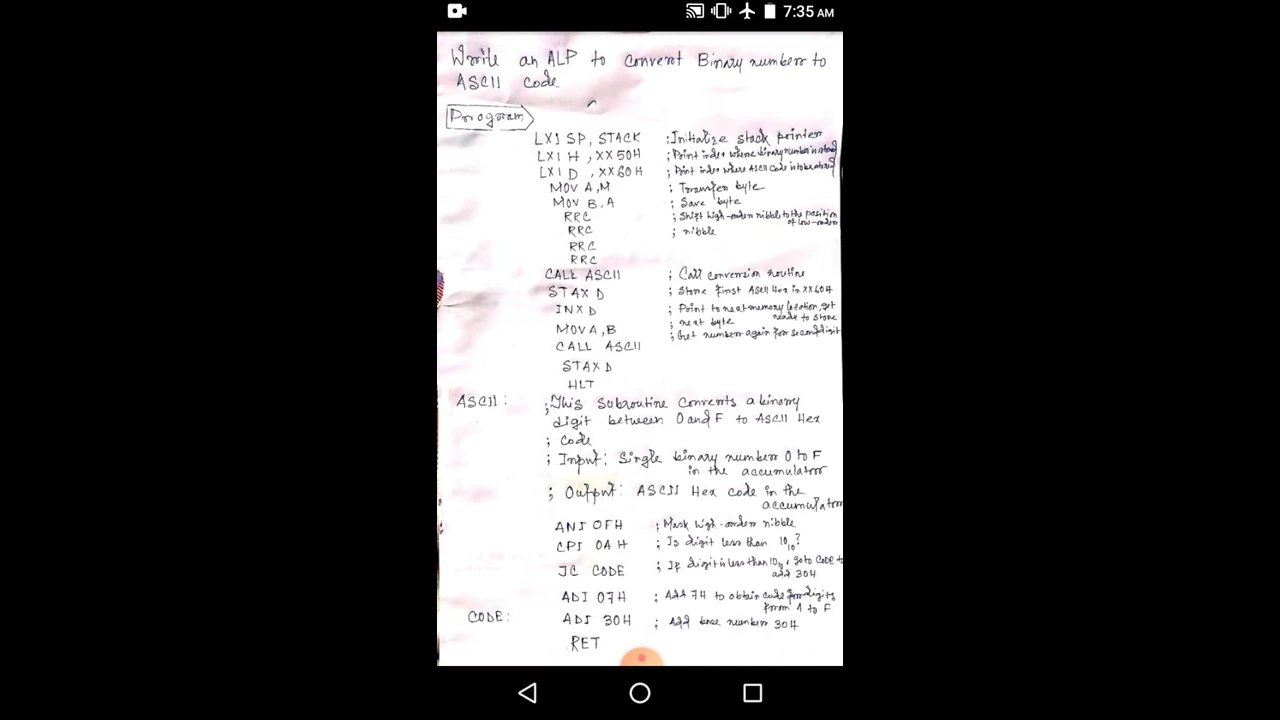 7:35 AM
Write an ALP to convert Binary number to
ASCII code
Program
LXI SP, STACK ; Initialize stack pointer
LXI H, XX50H ; Point index where binary number is stored
LXI D, XX60H ; Point index where ASCII code is to be stored
MOV A,M ; Transfer byte
MOV B,A ; Save byte
RRC ; Shift high-order nibble to the position
of low-order
RRC ; nibble
RRC
RRC
CALL ASCII ; Call conversion routine
STAX D ; Store first ASCII Hex in XX60H
INX D ; Point to next memory location, get
ready to store
; next byte
MOV A,B ; Get number again for second digit
CALL ASCII
STAX D
HLT
ASCII: ; This subroutine converts a binary
digit between 0 and F to ASCII Hex
; code
; Input: Single binary number 0 to F
in the accumulator
; Output: ASCII Hex code in the
accumulator
ANI 0FH ; Mask high-order nibble
CPI 0AH ; Is digit less than 10₁₀?
JC CODE ; If digit is less than 10₁₀, goto CODE to
add 30H
ADI 07H ; Add 7H to obtain code for digits
from A to F
CODE: ADI 30H ; Add base number 30H
RET